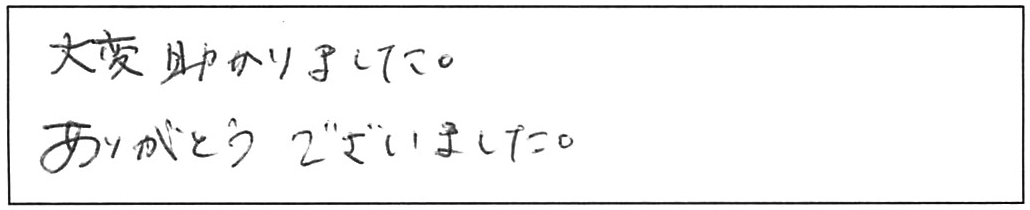 大変助かりました。
ありがとうございました。